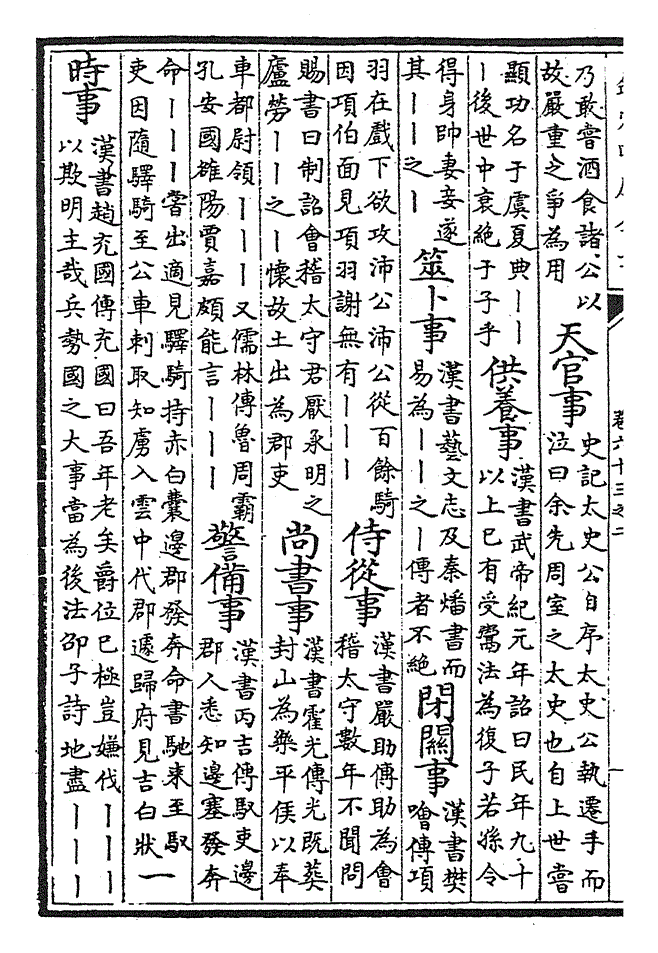 乃敢嘗酒食諸公以
故嚴重之爭為用
天官事
史記太史公自序太史公執遷手而
泣曰余先周室之太史也自上世嘗
顯功名于虞夏典｜｜
｜後世中衰絶于予乎
供養事
漢書武帝紀元年詔曰民年九十
以上已有受鬻法為復子若孫令
得身帥妻妾遂
其｜｜之｜
筮卜事
漢書藝文志及秦燔書而
易為｜｜之｜傳者不絶
閉關事
漢書樊
噲傳項
羽在戲下欲攻沛公沛公從百餘騎
因項伯面見項羽謝無有｜｜｜
侍從事
漢書嚴助傳助為會
稽太守數年不聞問
賜書曰制詔會稽太守君厭承明之
廬勞｜｜之｜懷故土出為郡吏
尚書事
漢書霍光傳光既葬
封山為樂平侯以奉
車都尉領｜｜｜又儒林傳魯周霸
孔安國雒陽賈嘉頗能言｜｜｜
警備事
漢書丙吉傳馭吏邊
郡人悉知邊塞發奔
命｜｜｜嘗出適見驛騎持赤白囊邊郡發奔命書馳来至馭
吏因隨驛騎至公車刺取知虜入雲中代郡遽歸府見吉白狀
一
時事
漢書趙充國傳充國曰吾年老矣爵位已極豈嫌伐｜｜｜
以欺明主哉兵勢國之大事當為後法邵子詩地盡｜｜｜